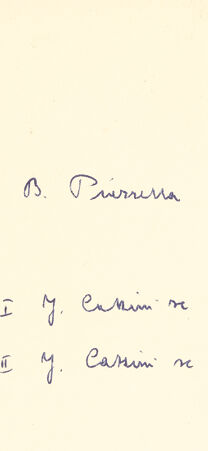 B. Pierrella
I Y. Cassini sc
II Y. Cassini sc